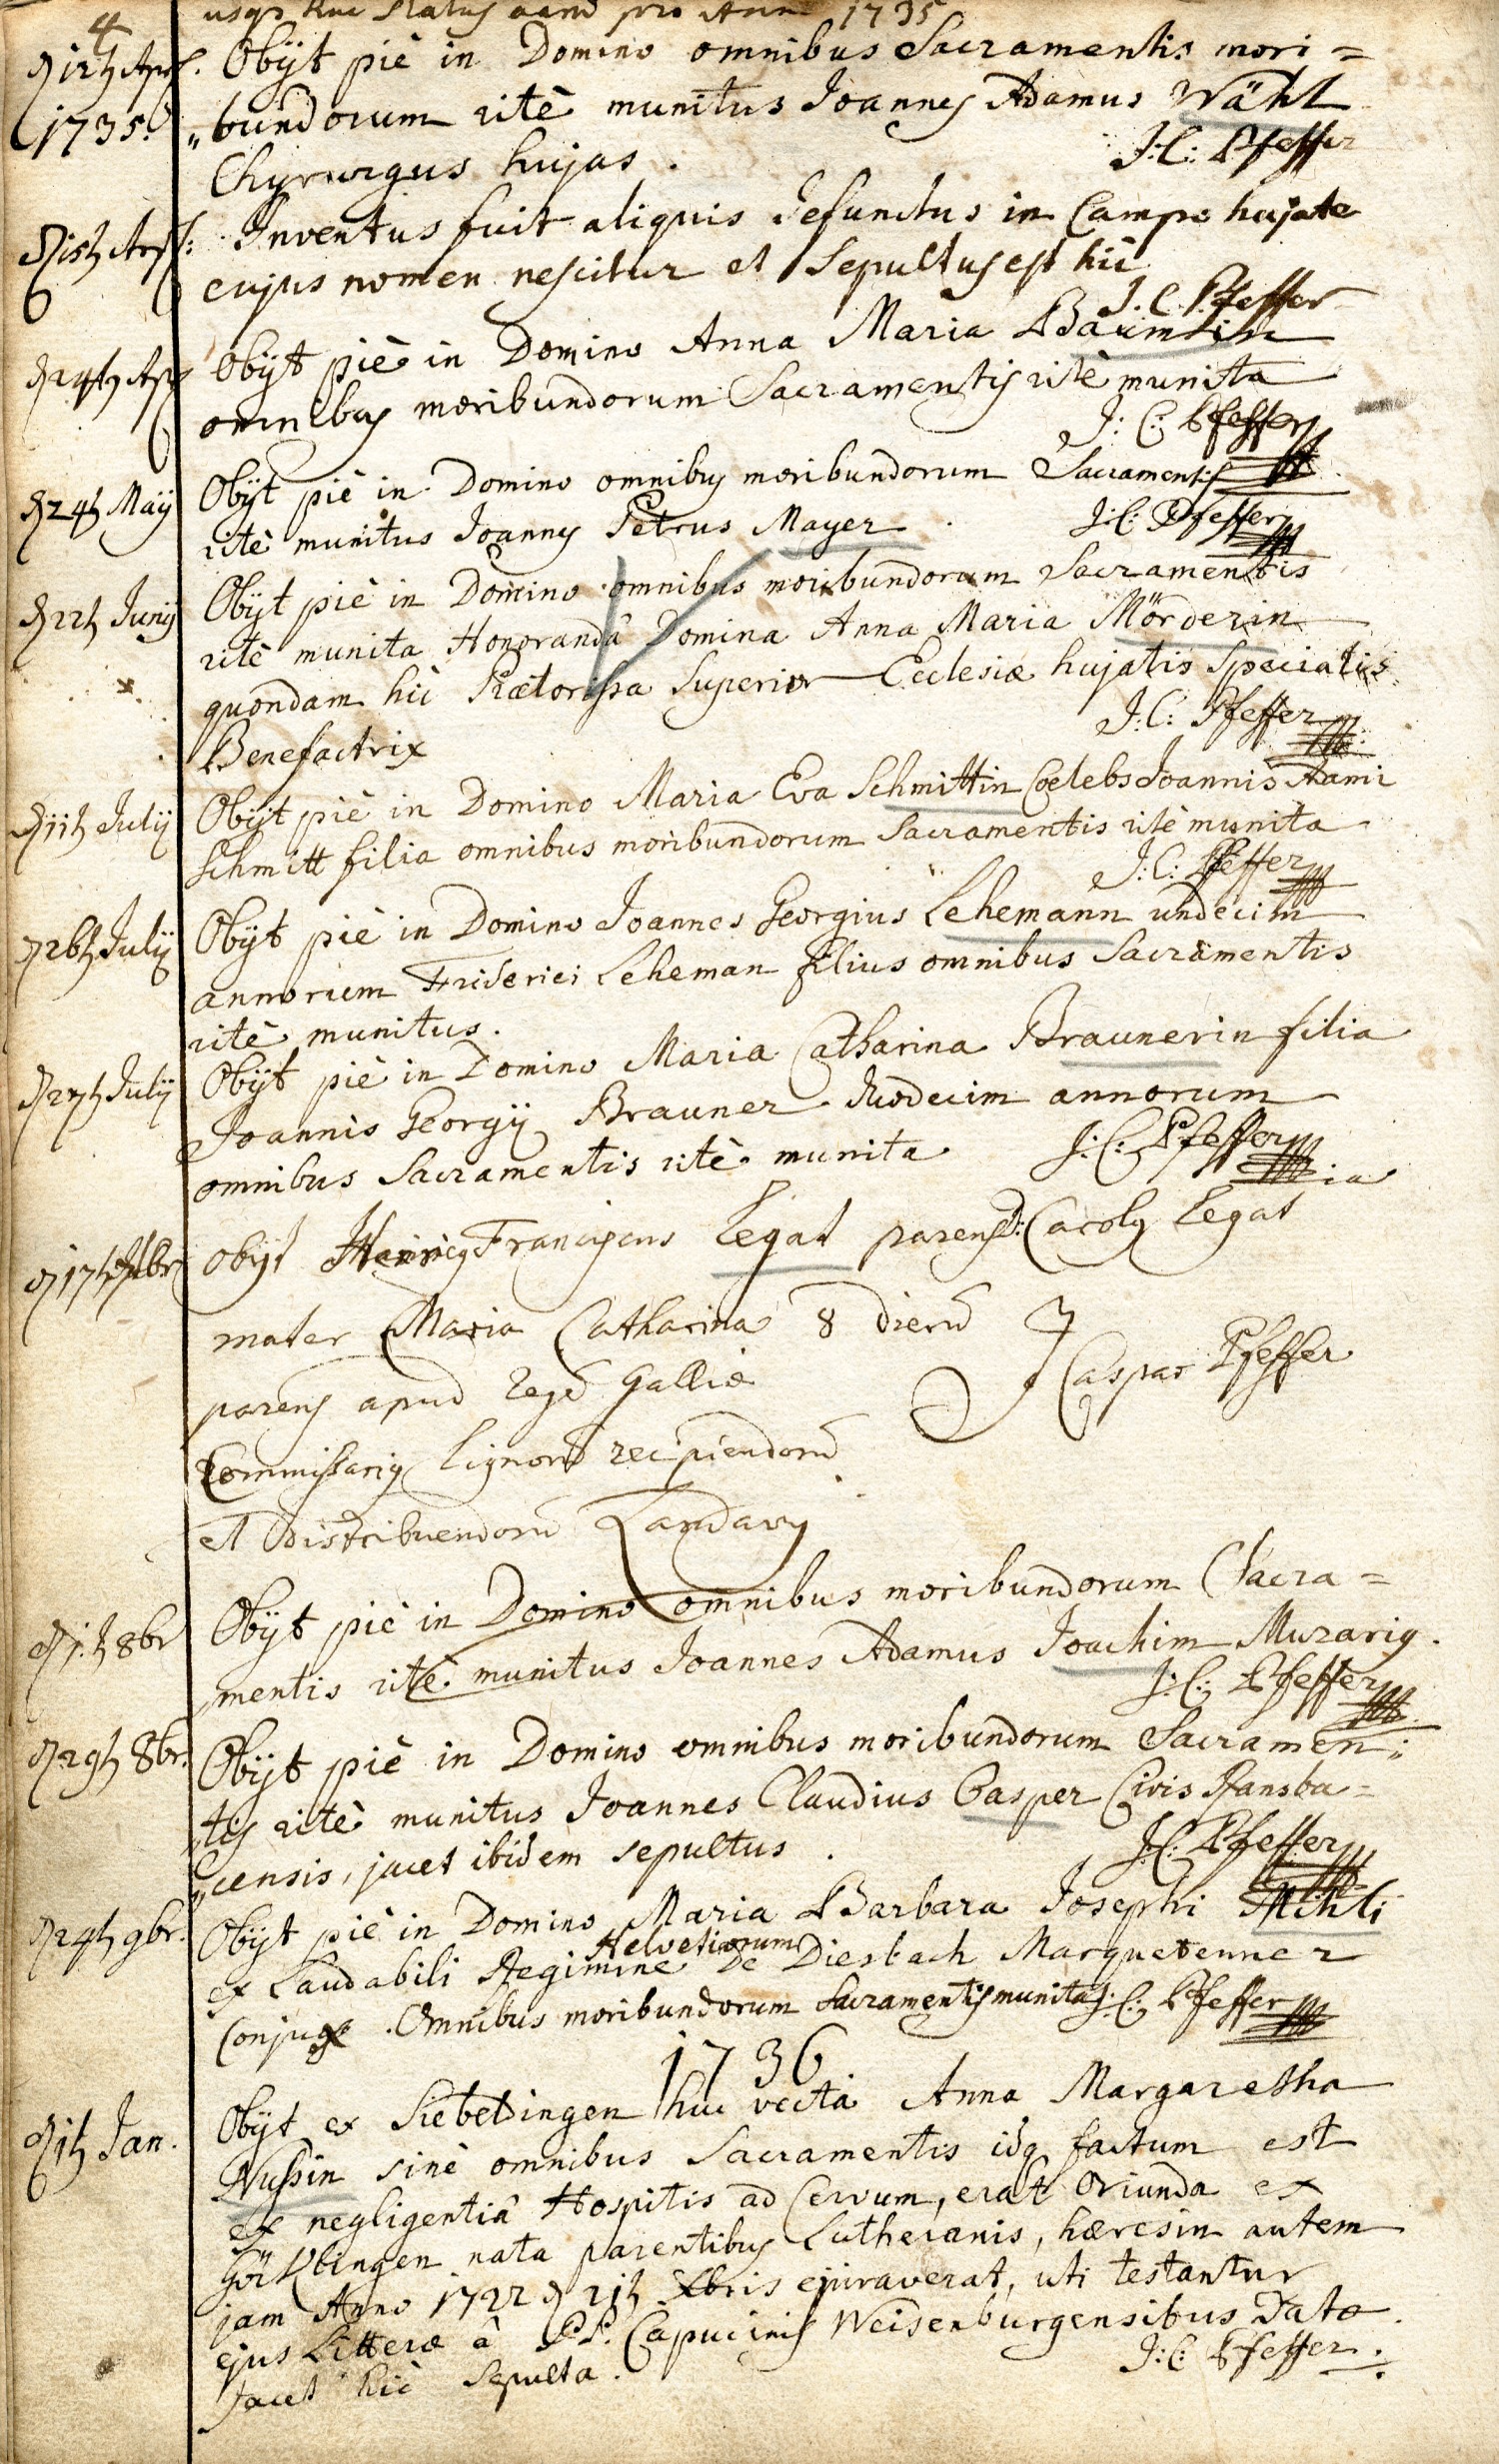 usq3 huc status aand pro Ann 1735
4
d 12t Apr. Obÿt piè in Domino omnibus Sacramentis mori =
1735. „bundorum ritè munitus Joannes Adamus Wähl
Chyrurgus hujas . J: C: Pfeffer
d 15t Apr: Inventus fuit aliquis defunctus in Campo hujate
cujus nomen nescitur et sepultus est hic
J. C. Pfeffer
d 24t Apr Obÿt piè in Domino Anna Maria Baumlin
omnibus moribundorum Sacramentis ritè munita
J: C: Pfeffer
d 24t Maÿ Obÿt piè in Domino omnibus moribundorum Sacramentis
ritè munitus Joannes Petrus Mayer . J: C: Pfeffer
d 22t Junÿ Obÿt piè in Domino omnibus moribundorum Sacramentis
ritè munita Honoranda Domina Anna Maria Mörderin
quondam hic Prætorissa Superior Ecclesiæ hujatis Specialis
Benefactrix J: C: Pfeffer
d 11t Julÿ Obÿt piè in Domino Maria Eva Schmittin Coelebs Joannis Adami
Schmitt filia omnibus moribundorum Sacramentis ritè munita
J: C: Pfeffer
d 26t Julÿ Obÿt piè in Domino Joannes Georgius Lehemann undecim
annorum Friderici Leheman filius omnibus Sacramentis
ritè munitus .
d 27t Julÿ Obÿt piè in Domino Maria Catharina Braunerin filia
Joannis Georgÿ Brauner duodecim annorum
omnibus Sacramentis ritè munita J: C: Pfeffer
d 17t 7br obÿt Henricus Franciscus Legat parens D: Carolus Legat
mater Maria Catharina 8 dierū J Caspar Pfeffer
parens apud Regē Galliæ
Commissarius lignorū recipiendorū
et distribuendorū Landavÿ
d 1t 8br Obÿt piè in Domino omnibus moribundorum Sacra =
„mentis ritè munitus Joannes Adamus Joachim Murarius .
J: C: Pfeffer
d 29t 8br. Obÿt piè in Domino omnibus moribundorum Sacramen :
„tis ritè munitus Joannes Claudius Casper Civis Ransba =
„censis, jacet ibidem sepultus . J: C: Pfeffer
d 24t 9br. Obÿt piè in Domino Maria Barbara Josephi Mihli
Helvetiorum
ex Laudabili Regimine De Diesbach Marquetenner
Conjuge . Omnibus moribundorum Sacramentis munita J: C: Pfeffer
1736
d 1t Jan. Obÿt ex Siebeldingen huc vecta Anna Margaretha
Nussin sinè omnibus Sacramentis idq factum est
ex negligentiâ Hospitis ad Cervum, erat Oriunda ex
nata parentibus Lutheranis, hæresin autem
jam Anno 1722 d 21t Xbris ejuraverat, uti testantur
ejus Litteræ â P.P. Capucinis Weisenburgensibus Datæ .
Jacet hic sepulta . J: C: Pfeffer .